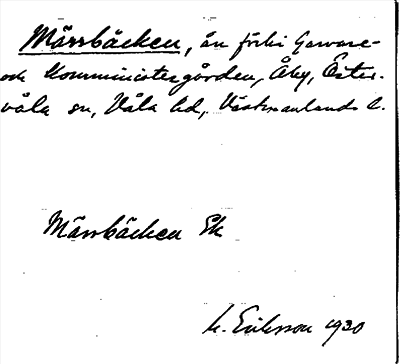 Mårrbäcken, å förbi Garvare-
och Komministergården, Åby, Öster-
våla sn, Våla hd, Västmanlands l.
Mårrbäcken Ek
M. Eriksson 1930